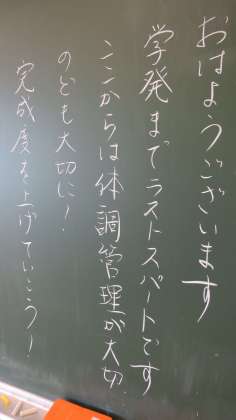 おはようございます
学発までラストスパートです
ここからは体調管理が大切
のども大切に!
完成度を上げていこう!